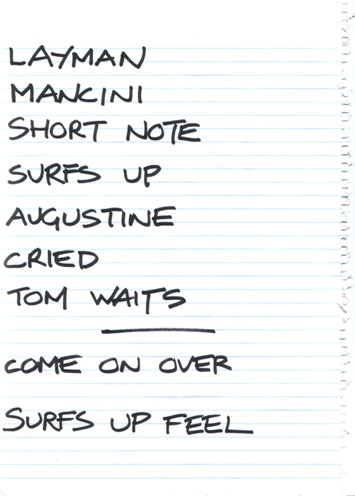 LAYMAN
MANCINI
SHORT NOTE
SURFS UP
AUGUSTINE
CRIED
TOM WAITS
COME ON OVER
SURFS UP FEEL